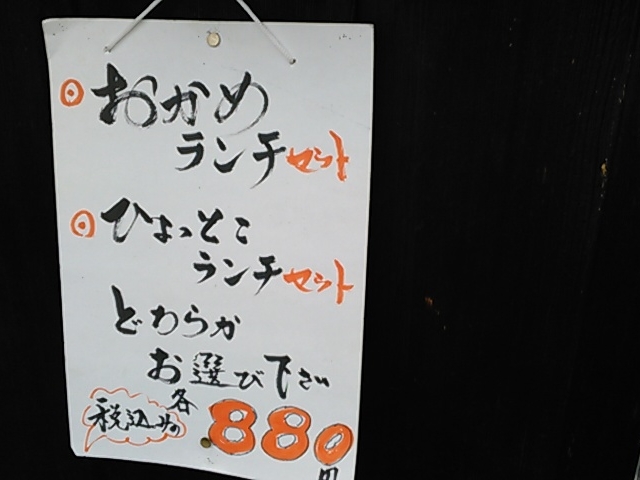 ◎おかめ
ランチセット
◎ひょっとこ
ランチセット
どちらか
お選び下さい
税込み 各880円